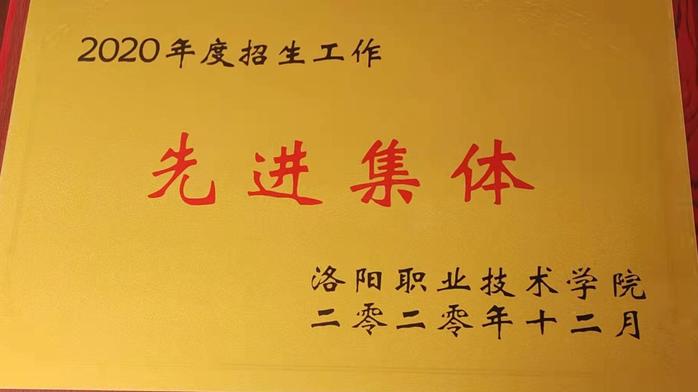 2020年度招生工作
先进集体
洛阳职业技术学院
二零二零年十二月